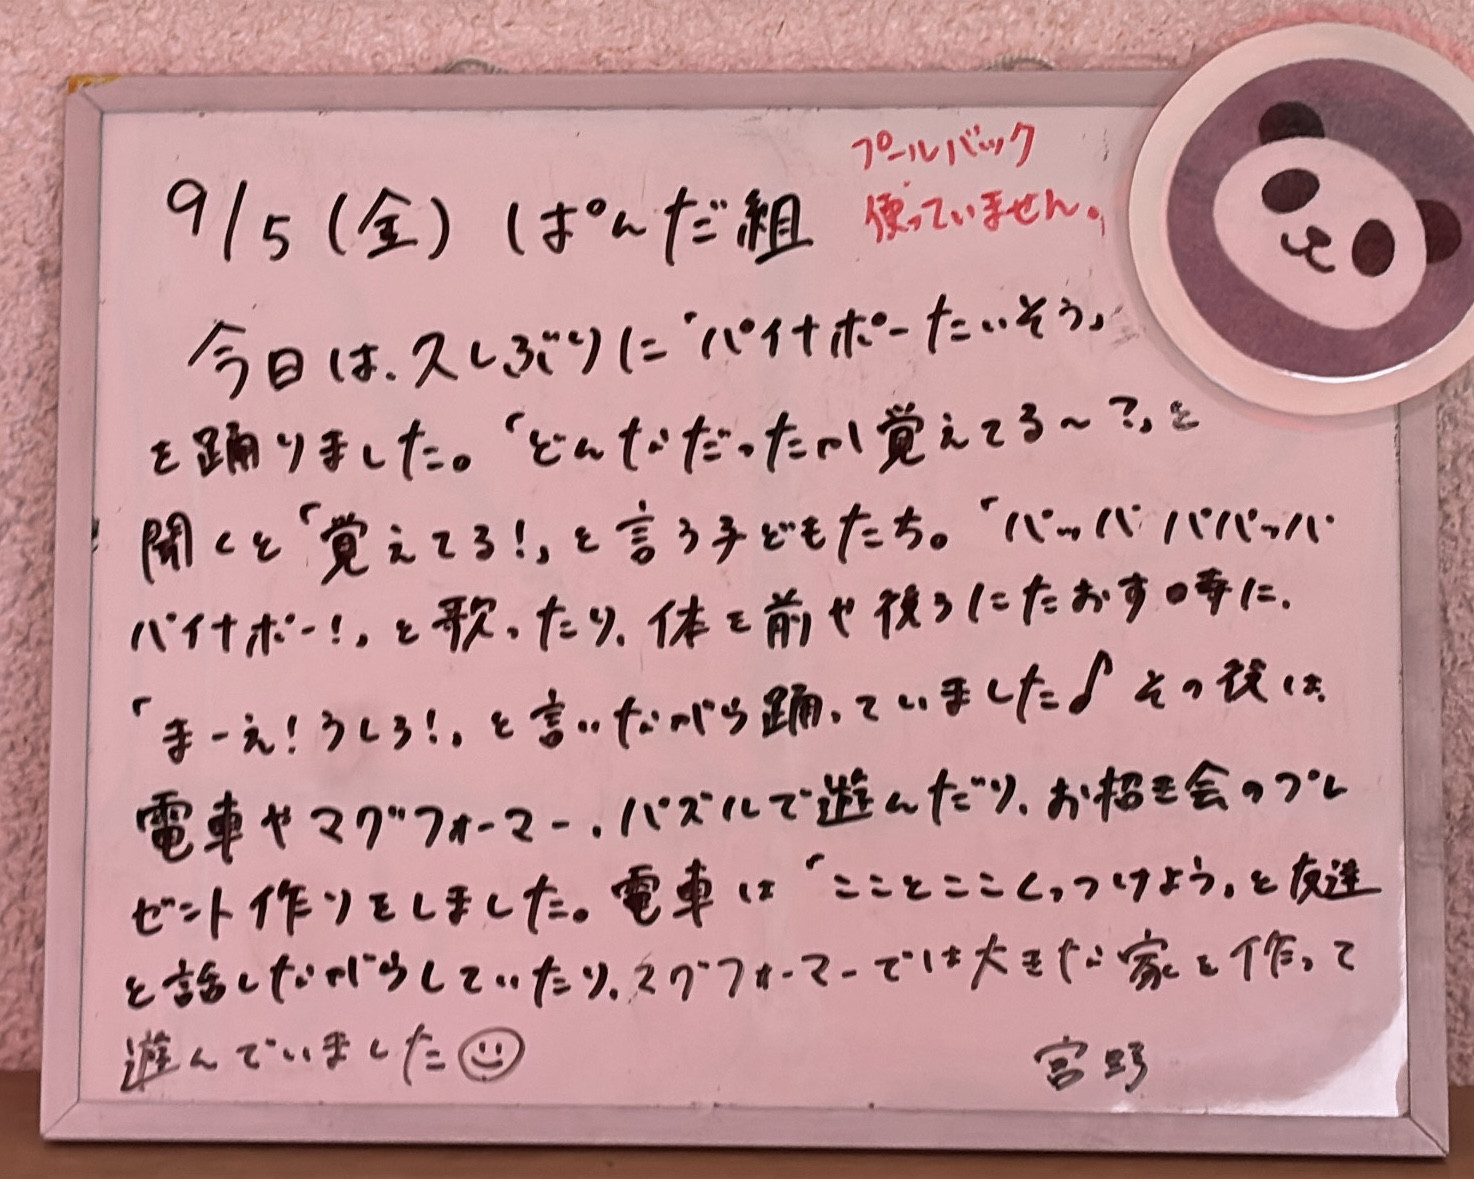 プールバック
使っていません。
9/5(金) ぱんだ組
今日は、久しぶりに「パイナポーたいそう」
を踊りました。「どんなだったか覚えてる〜?」と
聞くと「覚えてる!」と言う子どもたち。「パッパパパッパ
パイナポー!」と歌ったり、体を前や後ろにたおす時に、
「まーえ!うしろ!」と言いながら踊っていました♪その後は、
電車やマグフォーマー、パズルで遊んだり、お招き会のプレ
ゼント作りをしました。電車は「こことここくっつけよう」と友達
と話しながらしていたり、マグフォーマーでは大きな家を作って
遊んでいました☺
宮野